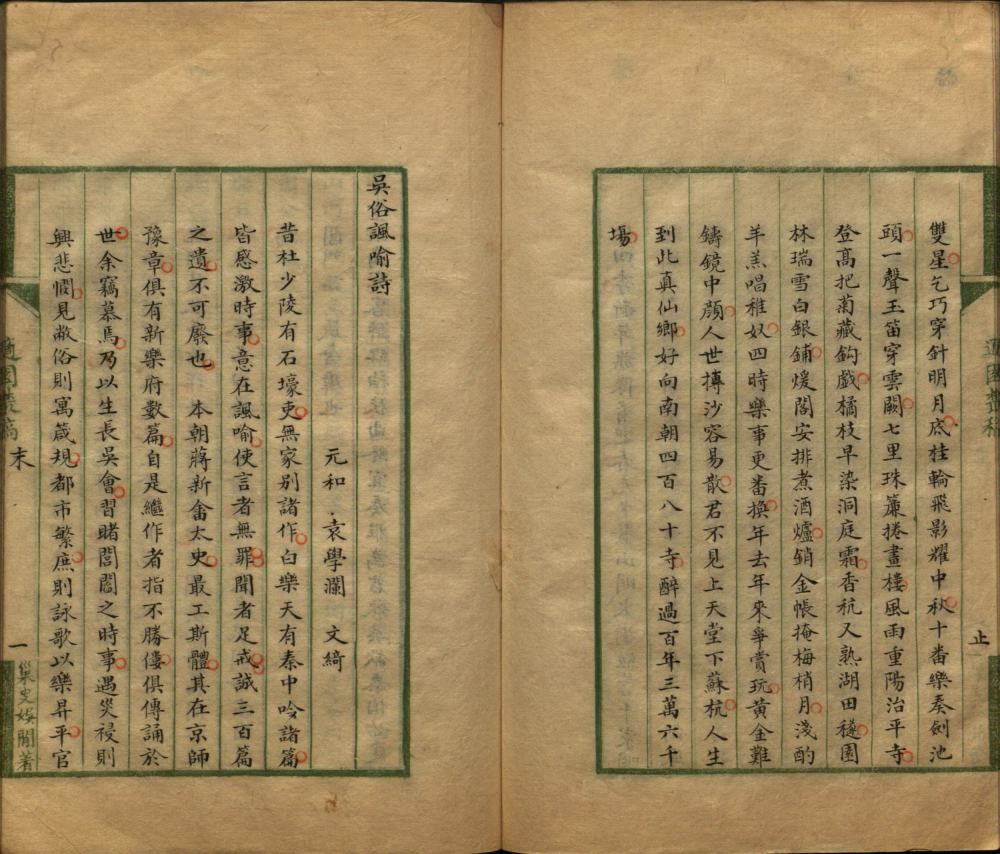 止
雙星乞巧穿針明月底桂輪飛影耀中秋十番樂奏劍池
頭一聲玉笛穿雲闕七里珠簾捲畫樓風雨重陽治平寺
登髙把菊藏鈎戲橘枝早染洞庭霜香秔又熟湖田穟園
林瑞雪白銀鋪煖閣安排煮酒爐銷金帳掩梅梢月淺酌
羊羔唱稚奴四時樂事更番換年去年來爭賞玩黃金難
鑄鏡中顔人世摶沙容易散君不見上天堂下蘇杭人生
到此真仙鄉好向南朝四百八十寺醉過百年三萬六千
場
吳俗諷喻詩
元和 袁學瀾 文綺
昔杜少陵有石壕吏無家別諸作白樂天有秦中吟諸篇
皆感激時事意在諷喻使言者無罪聞者足戒誠三百篇
之遺不可廢也 本朝蔣新畬太史最工斯體其在京師
豫章俱有新樂府數篇自是繼作者指不勝僂俱傳誦於
世余竊慕焉乃以生長吳會習睹閭閻之時事遇災祲則
興悲憫見敝俗則寓箴規都市繁庶則詠歌以樂昇平官
適園叢稿
末
一
巢史娛閒著